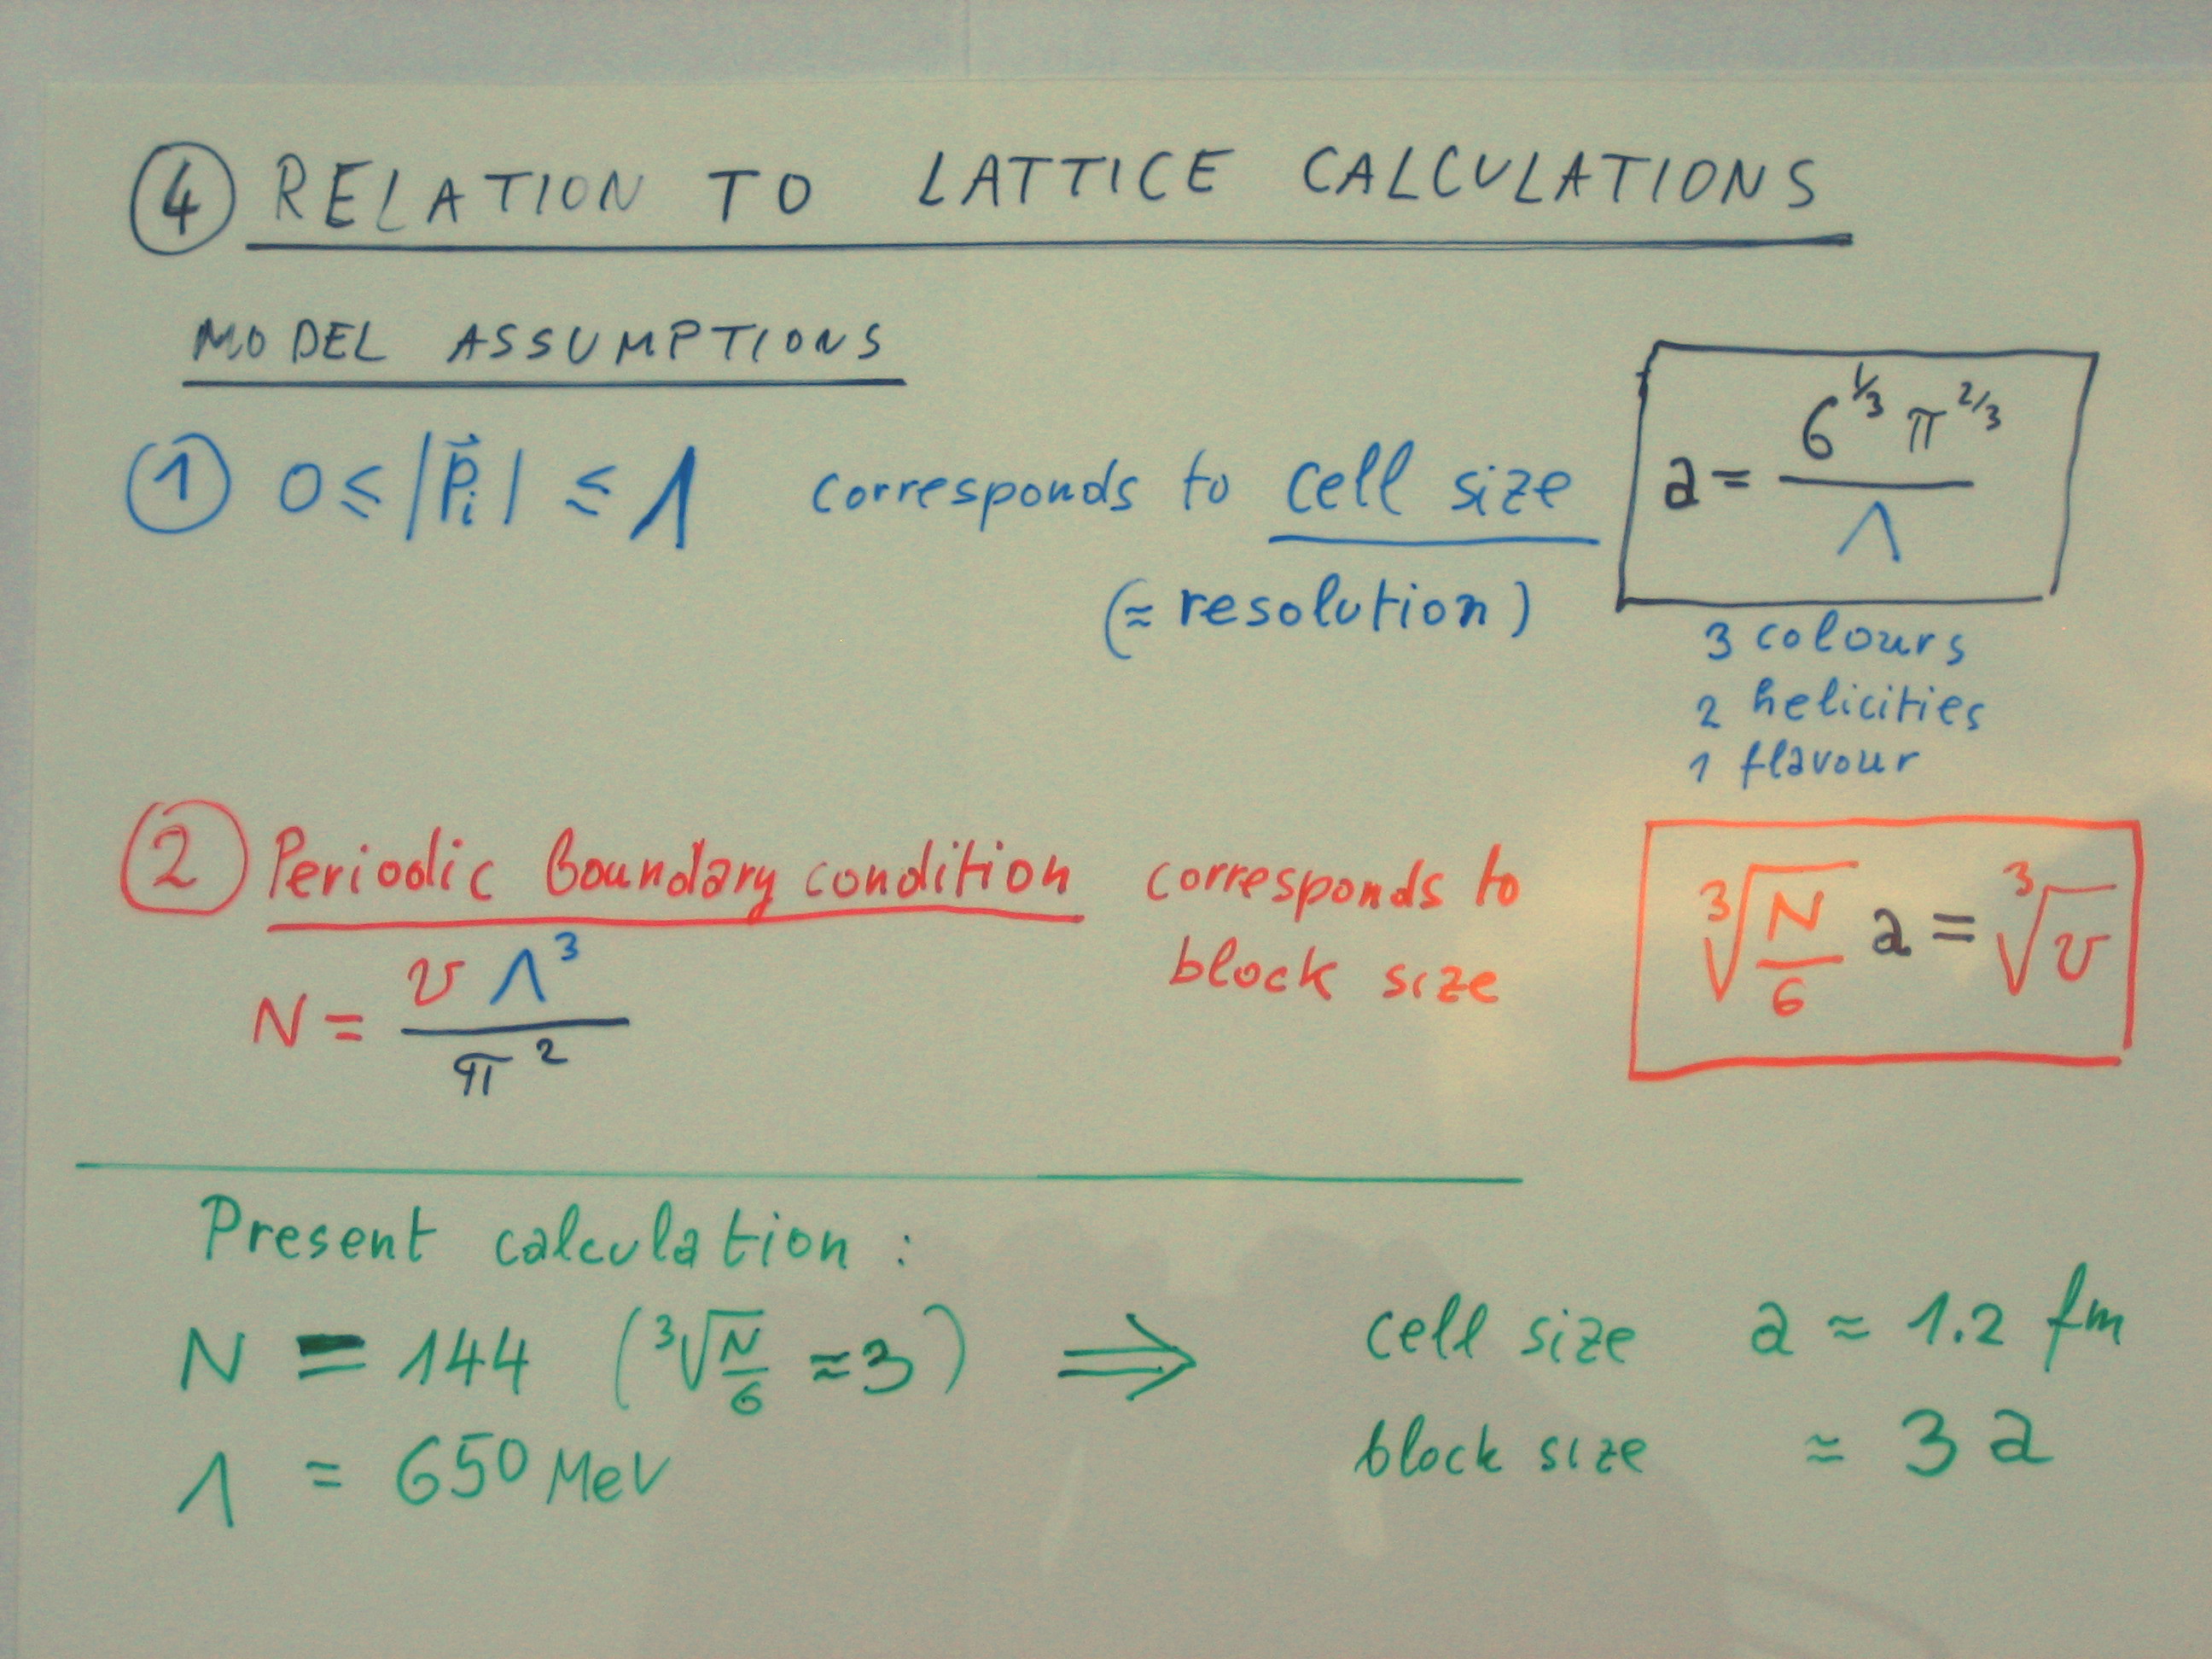 ④ RELATION TO LATTICE CALCULATIONS
MODEL ASSUMPTIONS
① 0 ≤ |p⃗ᵢ| ≤ Λ corresponds to cell size
(≈ resolution)
a = 6^{1/3} π^{2/3} / Λ
3 colours
2 helicities
1 flavour
② Periodic boundary condition corresponds to
block size
N = 𝒱 Λ³ / π²
∛(N/6) a = ∛𝒱
Present calculation :
N = 144 (∛(N/6) ≈ 3) ⇒ cell size a ≈ 1.2 fm
Λ = 650 MeV block size ≈ 3 a